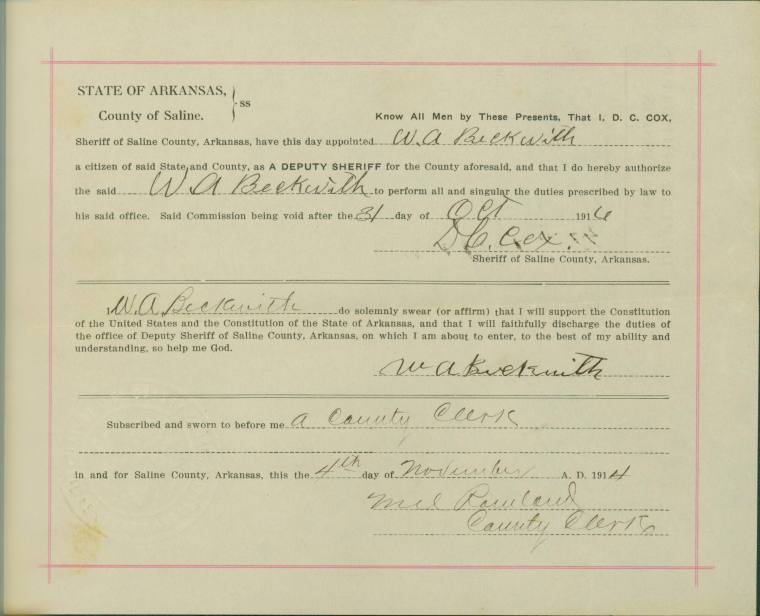 STATE OF ARKANSAS, } ss
County of Saline.
Know All Men by These Presents, That I, D. C. COX,
Sheriff of Saline County, Arkansas, have this day appointed W. A Beckwith
a citizen of said State and County, as A DEPUTY SHERIFF for the County aforesaid, and that I do hereby authorize
the said W. A Beckwith to perform all and singular the duties prescribed by law to
his said office. Said Commission being void after the 31 day of Oct 1916
D. C. Cox.
Sheriff of Saline County, Arkansas.
I W. A. Beckwith do solemnly swear (or affirm) that I will support the Constitution
of the United States and the Constitution of the State of Arkansas, and that I will faithfully discharge the duties of
the office of Deputy Sheriff of Saline County, Arkansas, on which I am about to enter, to the best of my ability and
understanding, so help me God.
W A Beckwith
Subscribed and sworn to before me a County Clerk
in and for Saline County, Arkansas, this the 4th day of November A. D. 1914
County Clerk